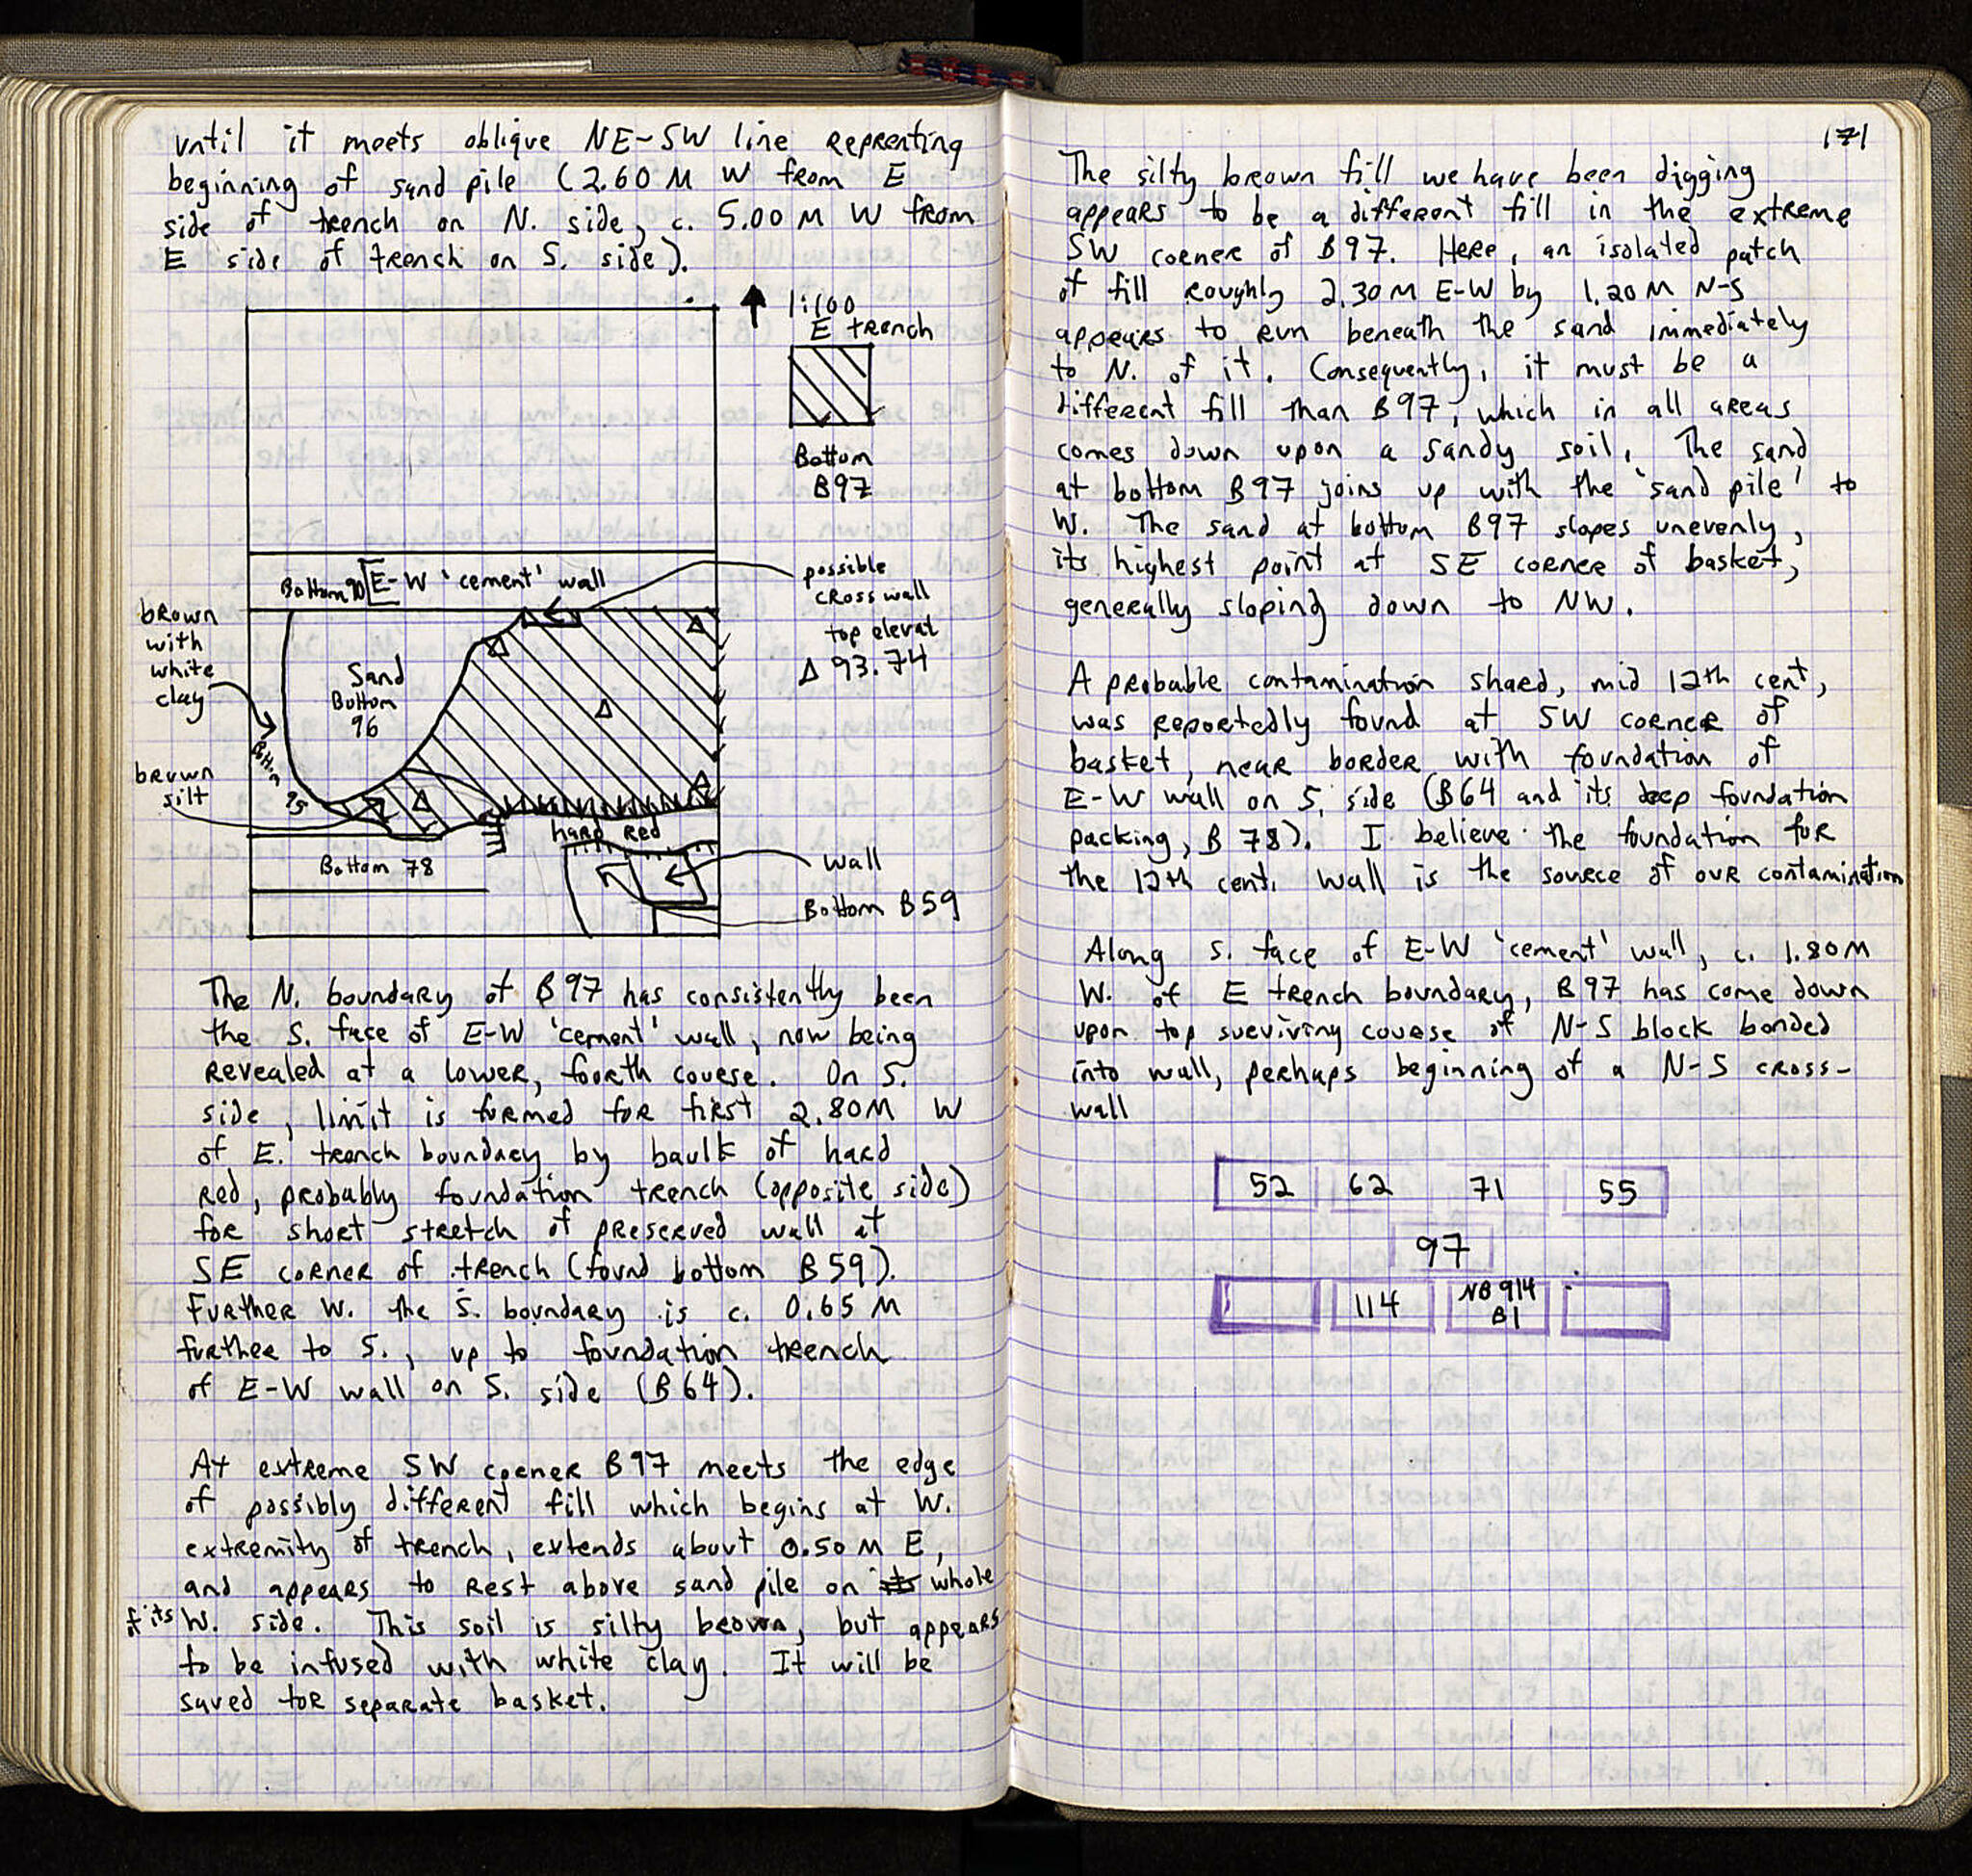 until it meets oblique NE-SW line reprenting
beginning of sand pile (2.60 M W from E
side of trench on N. side, c. 5.00 M W from
E side of trench on S. side).
1:100
E trench
Bottom
B97
Bottom 90
E-W 'cement' wall
possible
cross wall
top elevat
Δ 93.74
brown
with
white
clay
Sand
Bottom
96
Bottom 95
brown
silt
hard red
Bottom 78
wall
Bottom B59
The N. boundary of B97 has consistently been
the S. face of E-W 'cement' wall, now being
revealed at a lower, fourth course. On S.
side, limit is formed for first 2.80M W
of E. trench boundary by baulk of hard
red, probably foundation trench (opposite side)
for short stretch of preserved wall at
SE corner of trench (found bottom B59).
Further W. the S. boundary is c. 0.65 M
further to S., up to foundation trench
of E-W wall on S. side (B64).
At extreme SW corner B97 meets the edge
of possibly different fill which begins at W.
extremity of trench, extends about 0.50 M E,
and appears to rest above sand pile on its whole
of its W. side. This soil is silty brown, but appears
to be infused with white clay. It will be
saved for separate basket.
171
The silty brown fill we have been digging
appears to be a different fill in the extreme
SW corner of B97. Here, an isolated patch
of fill roughly 2.30M E-W by 1.20M N-S
appears to run beneath the sand immediately
to N. of it. Consequently, it must be a
different fill than B97, which in all areas
comes down upon a sandy soil. The sand
at bottom B97 joins up with the 'sand pile' to
W. The sand at bottom B97 slopes unevenly,
its highest point at SE corner of basket,
generally sloping down to NW.
A probable contamination shard, mid 12th cent,
was reportedly found at SW corner of
basket, near border with foundation of
E-W wall on S. side (B64 and its deep foundation
packing, B 78). I believe the foundation for
the 12th cent. wall is the source of our contamination
Along S. face of E-W 'cement' wall, c. 1.80M
W. of E trench boundary, B97 has come down
upon top surviving course of N-S block bonded
into wall, perhaps beginning of a N-S cross-
wall
52 62 71 55
97
114 NB 914
B1